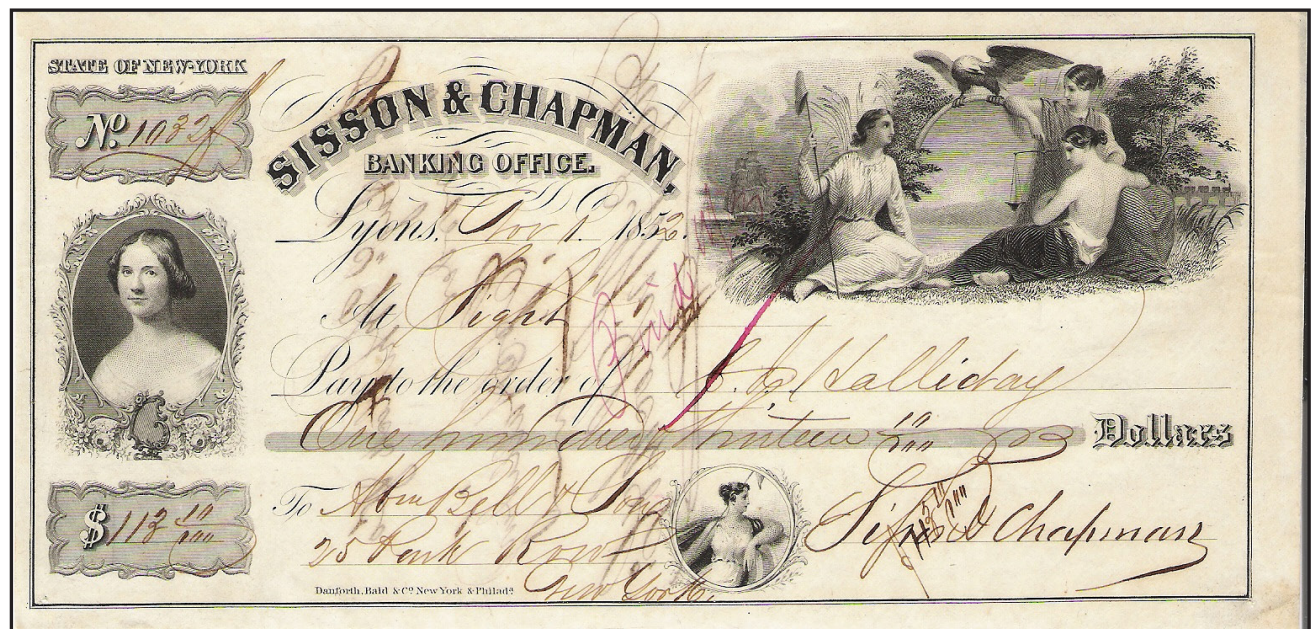 STATE OF NEW-YORK
No. 1032
SISSON & CHAPMAN,
BANKING OFFICE.
Lyons, Nov 1 1852.
At Sight
Pay to the order of Halliday
One hundred & thirteen 10/100 Dollars
$ 113 10/100
To & Sons
25 Park Row
New York.
Sisson & Chapman
Danforth, Bald & Co. New York & Philada.